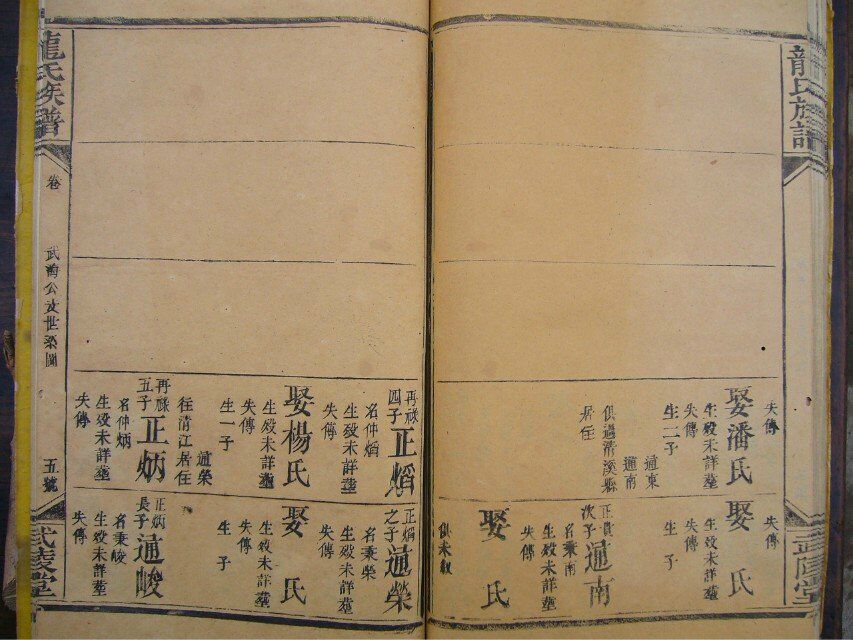 龍氏族譜
失傳
娶潘氏
生歿未詳塟
失傳
生二子
通東
通南
俱過清溪縣
居住
再祿
四子
正熖
名仲熖
生歿未詳塟
失傳
娶楊氏
生歿未詳塟
失傳
生一子
通榮
往清江居住
再祿
五子
正炳
名仲炳
生歿未詳塟
失傳
失傳
娶氏
生歿未詳塟
失傳
生子
正貴
次子
通南
名秉南
生歿未詳塟
失傳
娶氏
俱未叙
之子
通榮
名秉榮
生歿未詳塟
失傳
娶氏
生歿未詳塟
失傳
生子
正炳
長子
通峻
名秉峻
生歿未詳塟
失傳
武陵堂
龍氏族譜
卷
公支世系圖
五號
武陵堂